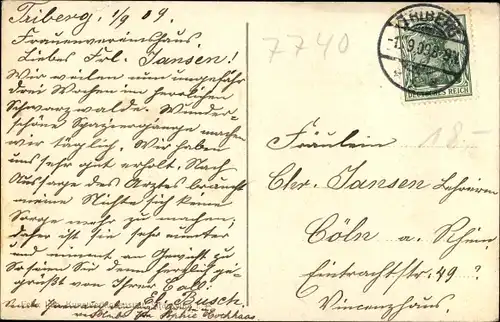 Triberg, 1/9 09.
Frauenvereinshaus
Liebes Frl. Jansen!
Wir weilen nun ungefähr
drei Wochen im herrlichen
Schwarzwalde. Wunder-
schöne Spaziergänge machen
wir täglich. Wir haben
uns sehr gut erholt. Nach
Aussage des Arztes braucht
meine Nichte sich keine
Sorge mehr zu machen,
daher ist sie sehr munter
und nimmt an Gewicht zu
So seien Sie denn herzlich ge-
grüßt von Ihrer Coll.
El. Busch.
Sophie Hochhaus
7740
TRIBERG
9.09
DEUTSCHES REICH
18.-
Fräulein
Chr. Jansen Lehrerin
Cöln a. Rhein
Eintrachtstr. 49 ?
Vincenzhaus.